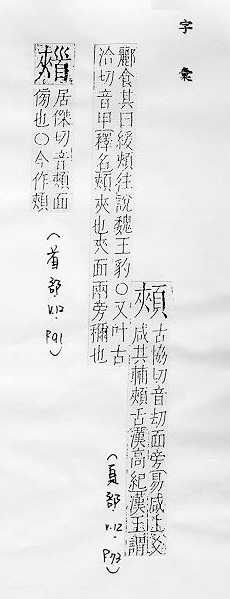 字彙
頰 古協切音劫面旁易咸上爻
咸其輔頰舌漢高紀漢王謂
酈食其曰緩頰往說魏王豹○又叶古
洽切音甲釋名頰夾也夾面兩旁穪也
(頁部 V.12. P73)
居傑切音頰面
傍也○今作頰
(首部 V.12 P91)